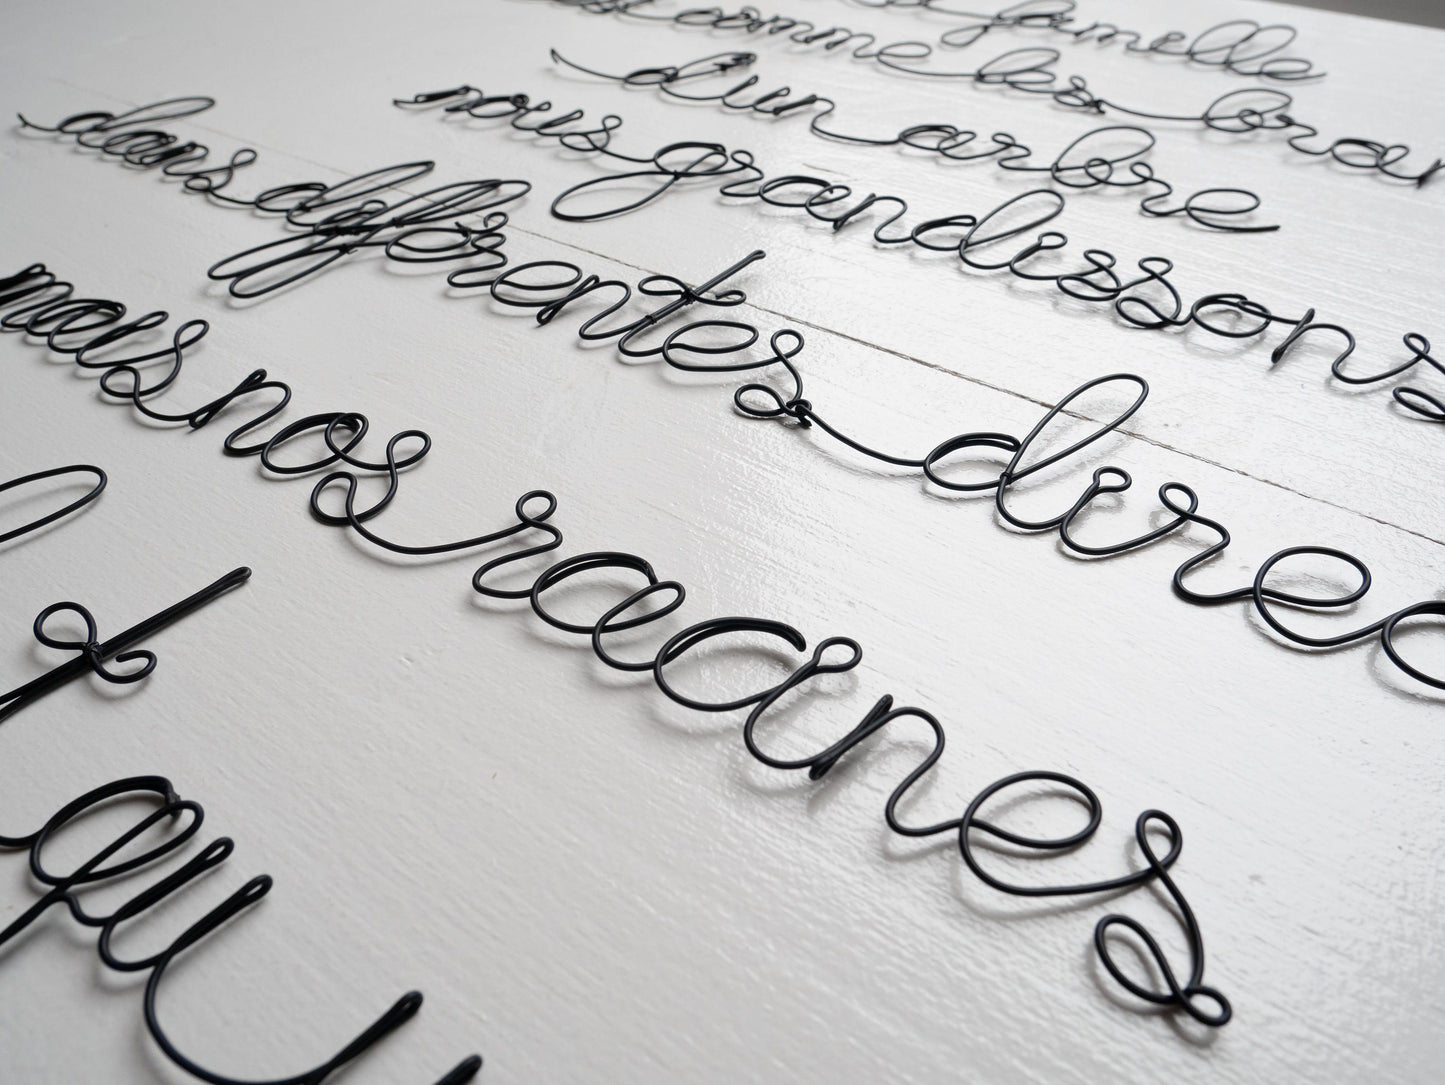 famille
comme les bran
d'un arbre
nous grandissons
dans différentes direc
mais nos racines
t
qu